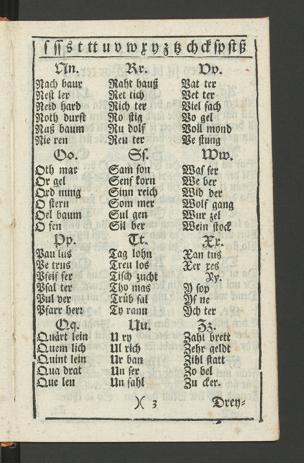 ſ ſſ s t tt u v w x y z tz ch ck ſp ſt ß
Nn.
Nach baur
Neſt ler
Neid hard
Noth durſt
Naß baum
Nie ren
Oo.
Oth mar
Or gel
Ord nung
O ſtern
Oel baum
O fen
Pp.
Pau lus
Pe trus
Pfeif fer
Pſal ter
Pul ver
Pfarr herr
Qq.
Quårt lein
Quem lich
Quint lein
Qua drat
Que len
Rr.
Raht hauß
Ret tich
Rich ter
Ro ſtig
Ru dolf
Reu ter
Sſ.
Sam ſon
Senf korn
Sinn reich
Som mer
Sul gen
Sil ber
Tt.
Tag lohn
Treu los
Tiſch zucht
Tho mas
Trüb ſal
Ty rann
Uu.
U ry
Ul rich
Ur ban
Un ſer
Un fahl
Vv.
Vat ter
Vet ter
Viel fach
Vo gel
Voll mond
Ve ſtung
Ww.
Waſ ſer
We ber
Wid der
Wolf gang
Wur zel
Wein ſtock
Xx.
Xan tus
Xer xes
Yy.
Y ſop
Yſ ne
Ych ter
Zz.
Zahl brett
Zehr geldt
Zihl ſtatt
Zo bel
Zu cker.
)( 3 Drey-